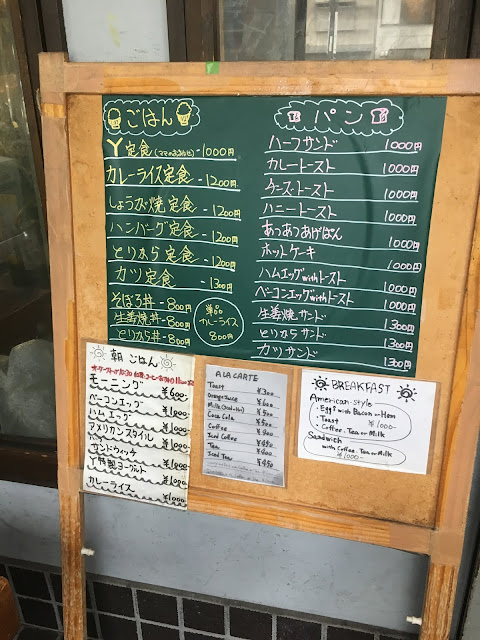 ごはん
Y定食(ママのおまかせ)-1000円
カレーライス定食-1200円
しょうが焼定食-1200円
ハンバーグ定食-1200円
とりから定食-1200円
カツ定食-1300円
そぼろ丼-800円
生姜焼丼-800円
とりから丼-800円
単品
カレーライス
800円
パン
ハーフサンド 1000円
カレートースト 1000円
チーズトースト 1000円
ハニートースト 1000円
あつあつあげぱん 1000円
ホットケーキ 1000円
ハムエッグwithトースト 1000円
ベーコンエッグwithトースト 1000円
生姜焼サンド 1300円
とりからサンド 1300円
カツサンド 1300円
朝ごはん
モーニング ¥600-
ベーコンエッグ ¥1000-
ハムエッグ ¥1000-
アメリカンスタイル ¥1000-
サンドウィッチ ¥1000-
Y特製ヨーグルト ¥1000-
カレーライス ¥1000-
A LA CARTE
Toast ¥300
Orange Juice ¥600
Milk (Hot or Ice) ¥500
Coca Cola ¥500
Coffee ¥400
Iced Coffee ¥450
Tea ¥400
Iced Tea ¥450
BREAKFAST
American-Style
・Egg with Bacon or Ham
・Toast ¥1000-
・Coffee, Tea or Milk
Sandwich
with Coffee, Tea or Milk
¥1000-